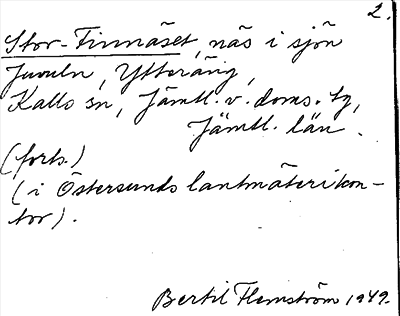 2.
Stor-Finnäset, näs i sjön
Juveln, Ytteräng,
Kalls sn, Jämtl. v. doms. tg,
Jämtl. län.
(forts.)
(i Östersunds lantmäterikon-
tor).
Bertil Flemström 1949.